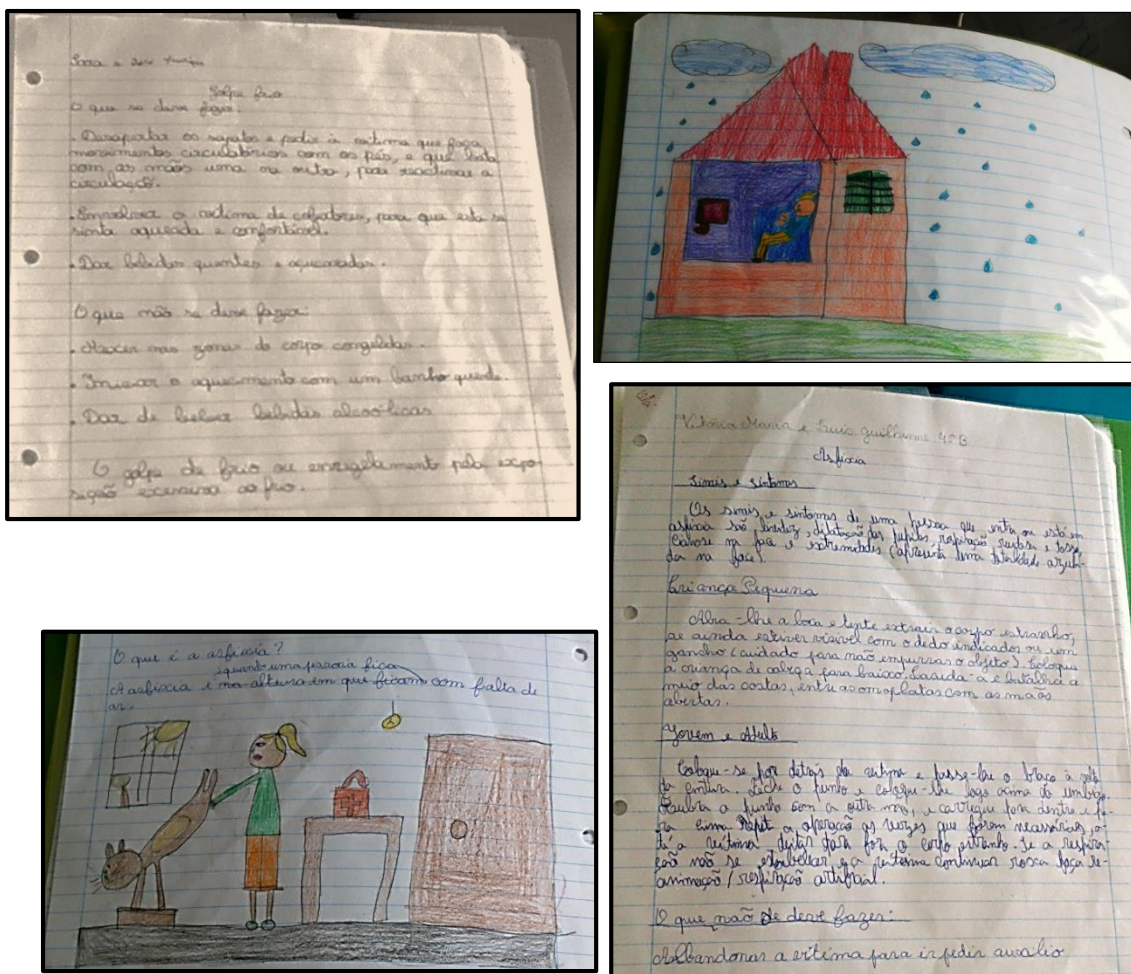 Golpe frio
O que se deve fazer:
. Desapertar os sapatos e pedir à vitima que faça
movimentos circulatórios com os pés, e que bata
com as mãos uma na outra, para reactivar a
circulação.
. Envolver a vitima de cobertores, para que esta se
sinta aquecida e confortável.
. Dar bebidas quentes e açucaradas.
O que não se deve fazer:
. Mexer nas zonas do corpo congeladas.
. Iniciar o aquecimento com um banho quente.
. Dar de beber bebidas alcoólicas
O golpe de frio ou enregelamento pela expo-
sição excessiva ao frio.
Vitória Maria e Luís Guilherme 4ºB
Asfixia
Sinais e sintomas
Os sinais e sintomas de uma pessoa que entra ou está em
asfixia são dilatação das pupilas, respiração ruidosa e tosse,
na face e extremidades (apresenta uma tonalidade azula-
da na face).
Criança Pequena
Abra-lhe a boca e tente extrair o corpo estranho,
se ainda estiver visível com o dedo indicador ou um
gancho (cuidado para não empurrar o objeto). Coloque
a criança de cabeça para baixo. Sacuda-a e
meio das costas, entre as omoplatas com as mãos
abertas.
Jovem e Adulto
Coloque-se por detrás da vitima e passe-lhe o braço à volta
da cintura. Feche o punho e coloque-lhe logo acima do umbigo.
o punho com a outra mão, e carregue para dentro e pa-
ra cima. a operação as vezes que forem necessárias, a-
té a vitima deitar para fora o corpo estranho. Se a respira-
ção não se e a continuar roxa faça re-
animação / respiração artificial.
O que não se deve fazer:
Abandonar a vítima para ir pedir auxilio
O que é a asfixia?
quando uma pessoa fica
A asfixia é na altura em que ficam com falta de
ar.